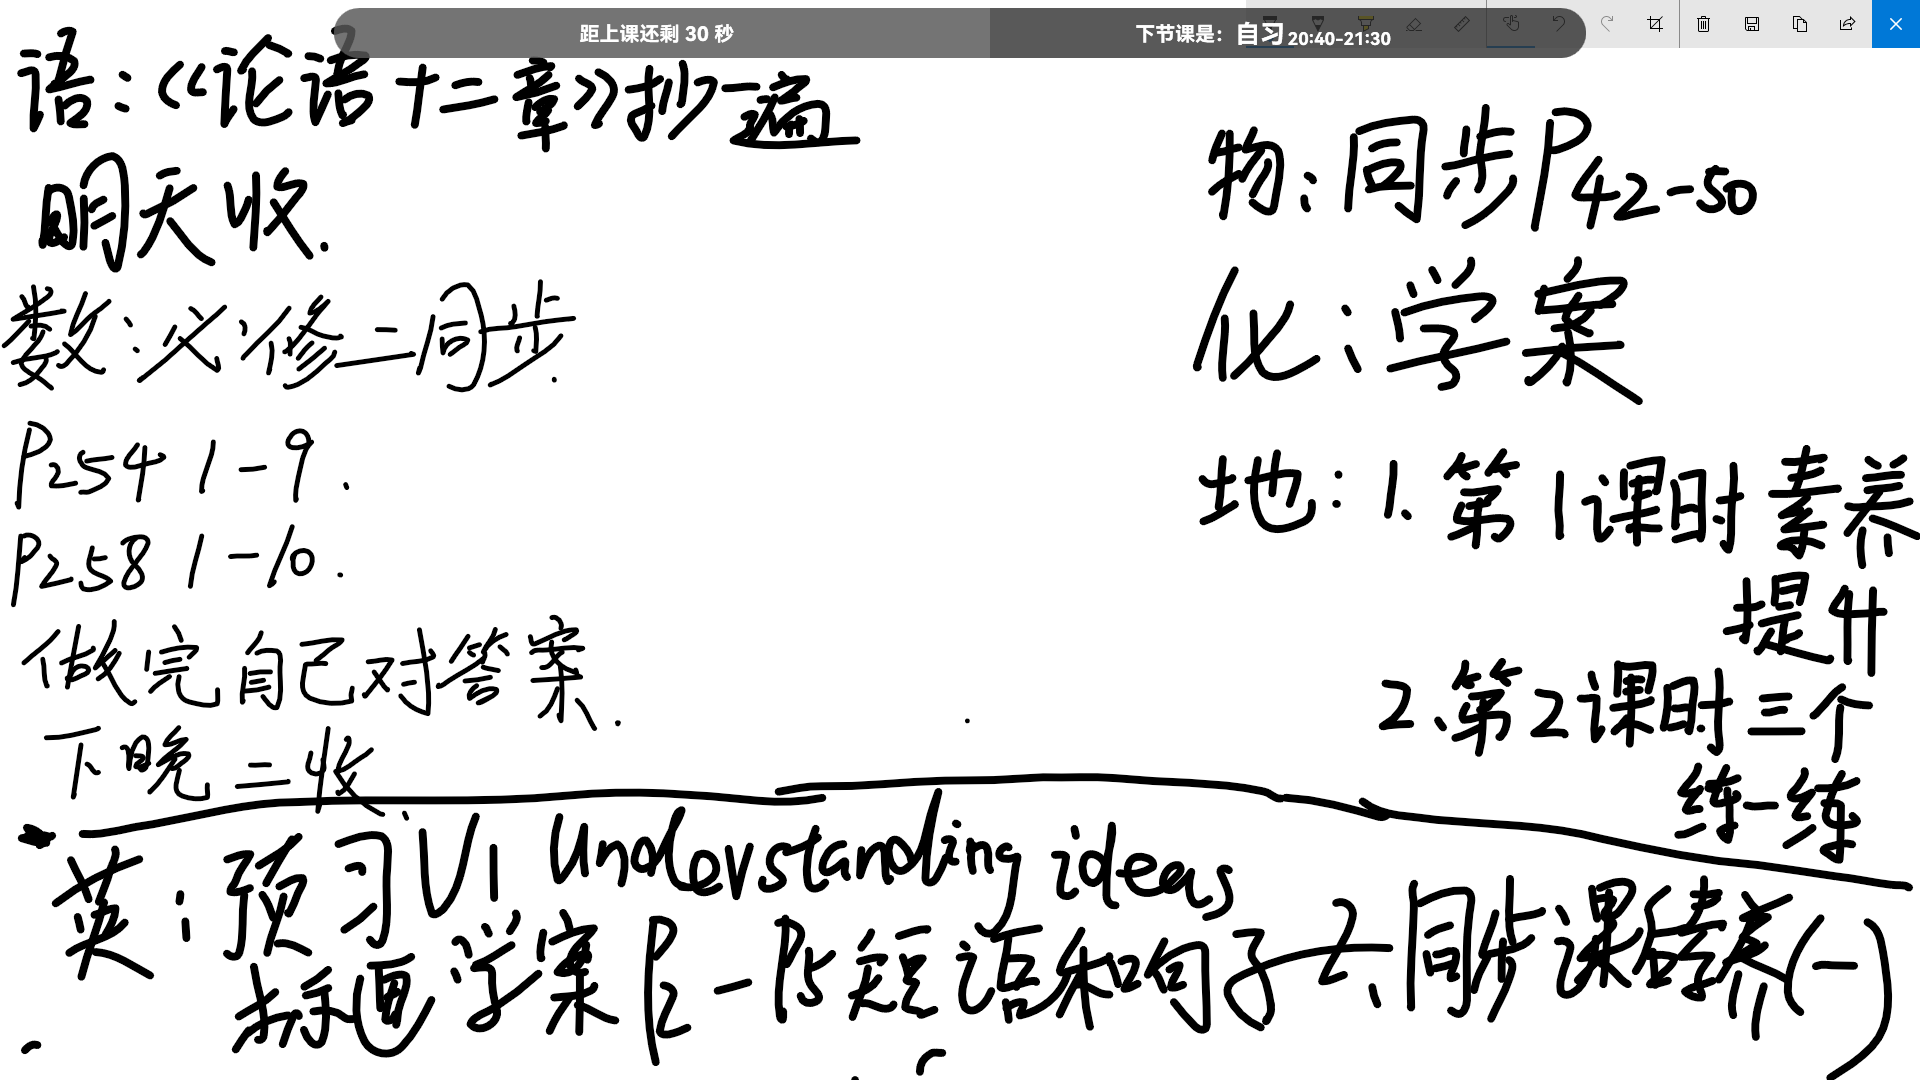 距上课还剩 30 秒
下节课是：自习 20:40-21:30
语：《论语十二章》抄一遍
明天收.
数：必修二同步.
P254 1-9.
P258 1-10.
做完自己对答案.
下晚二收.
物：同步P42-50
化：学案
地：1.第1课时素养
提升
2.第2课时三个
练一练
英：预习U1 Understanding ideas
标画学案P2-P5短语和句子 2、同步课后素养(一)